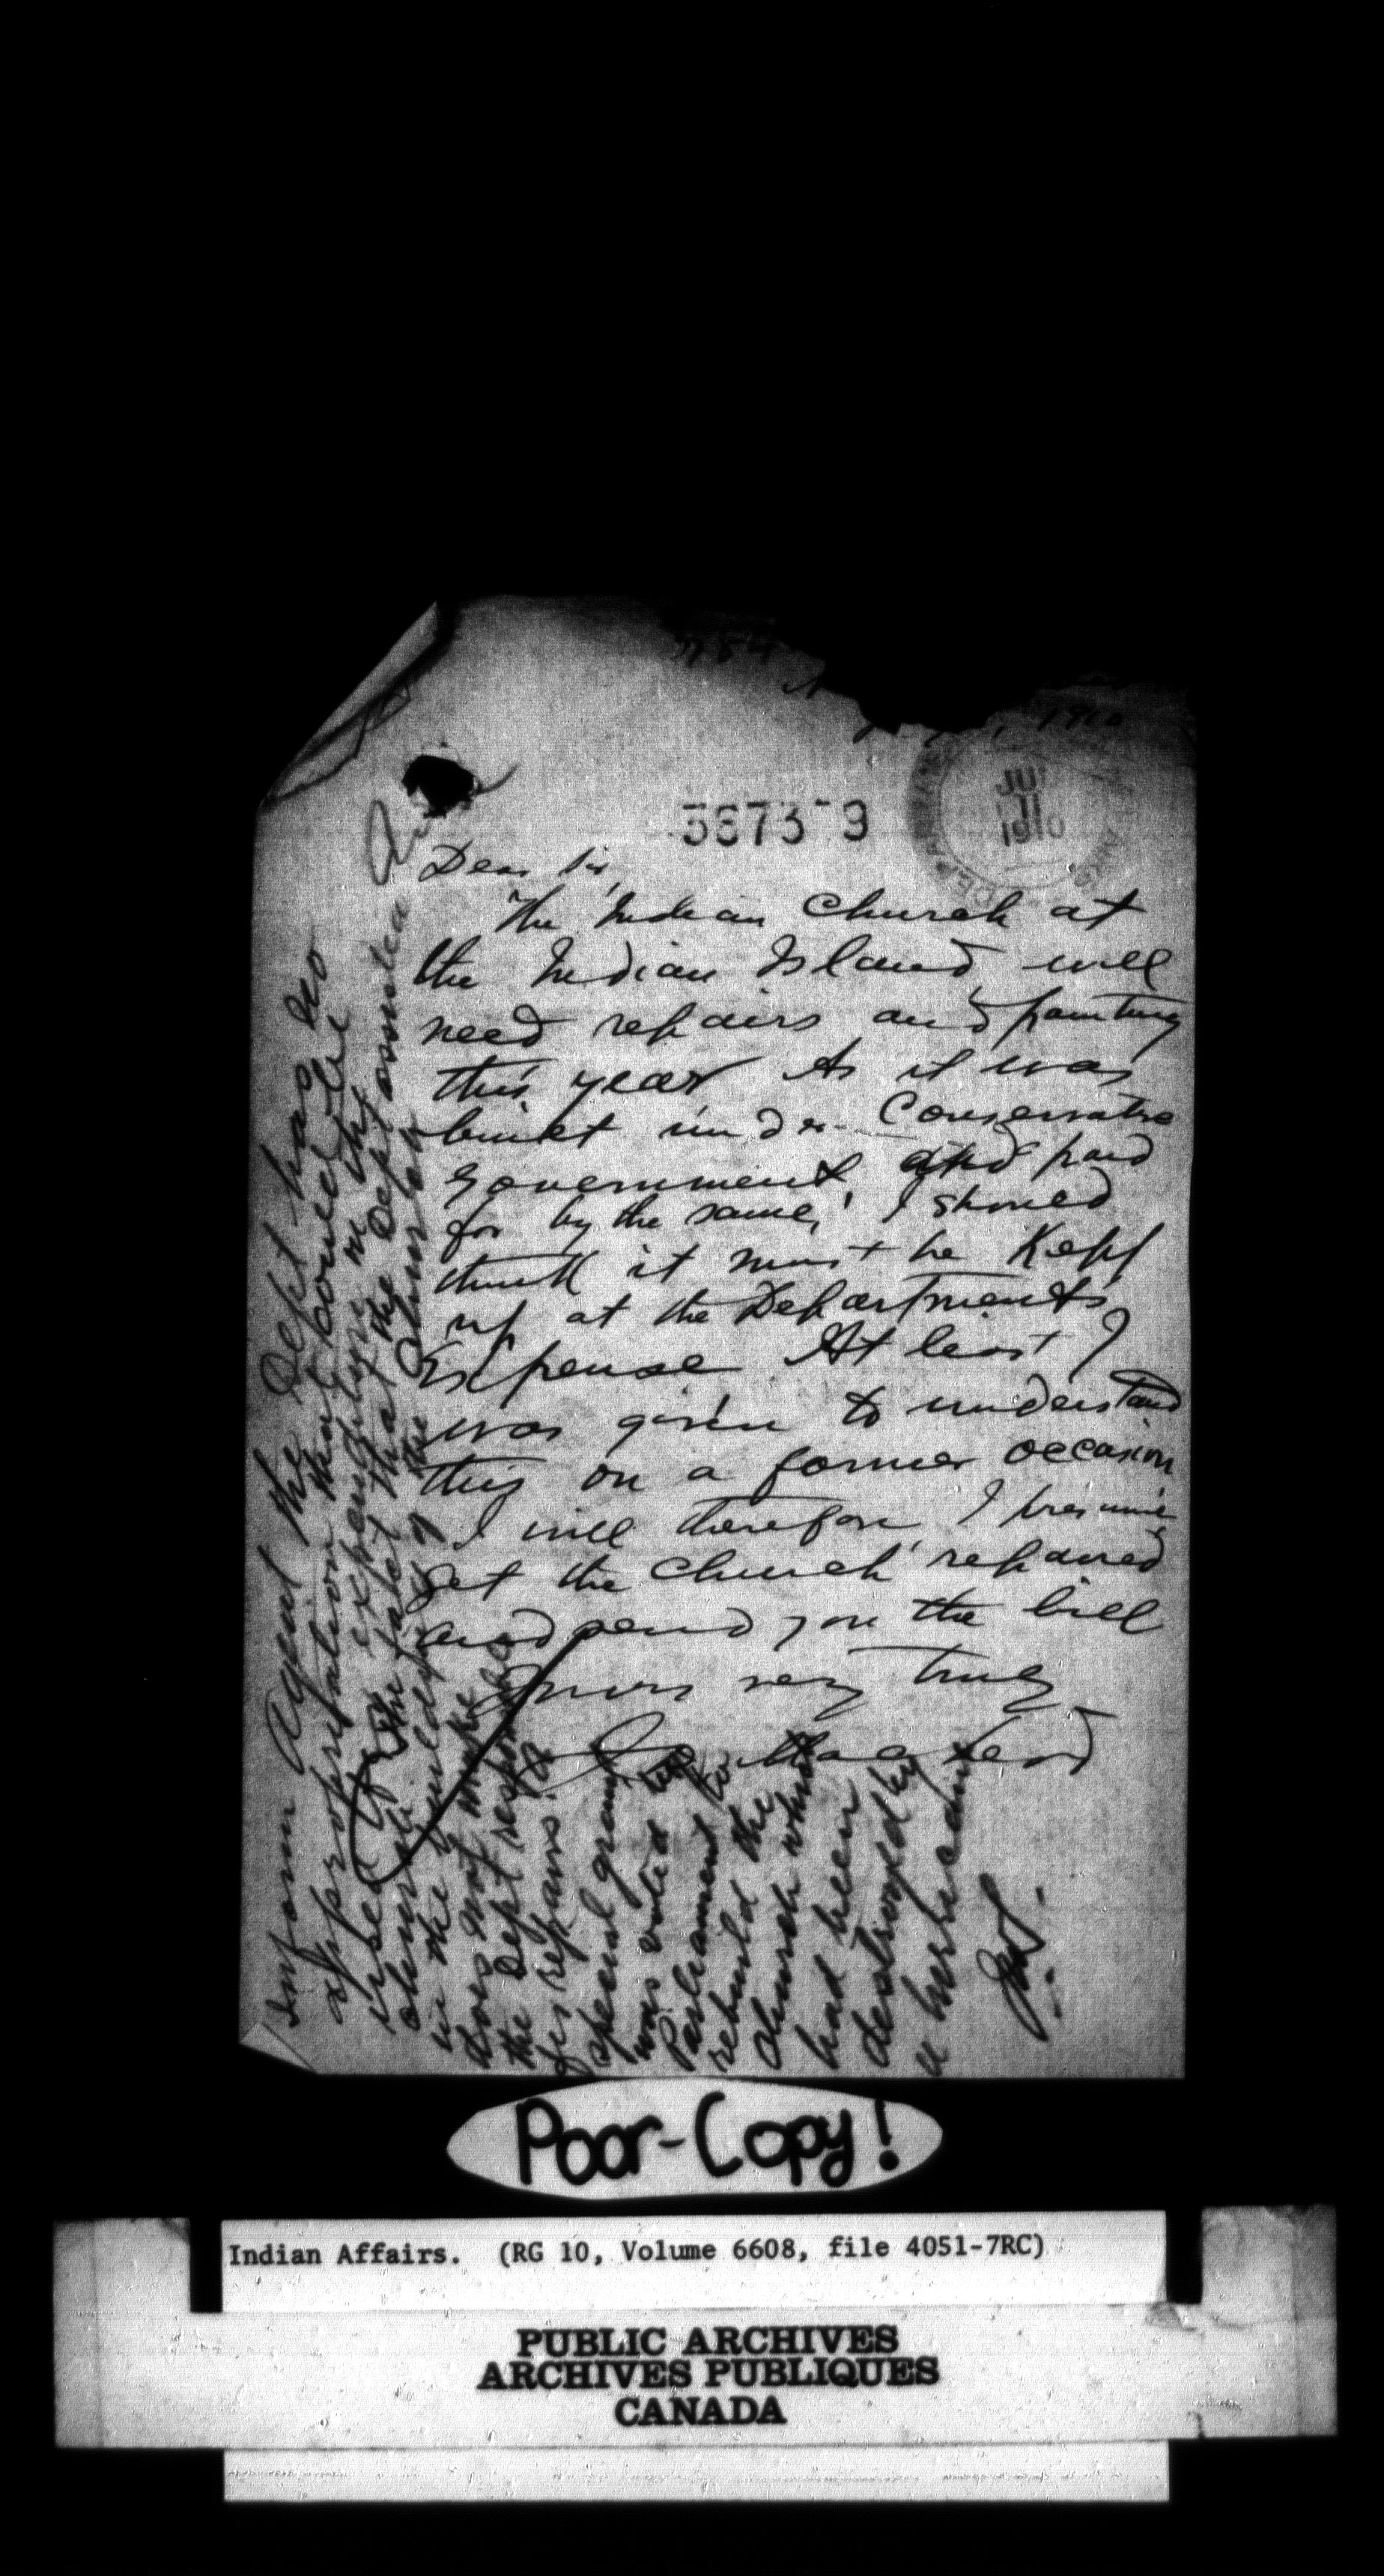 1910
JUL
11
1910
3873 9
Dear Sir,
The Indian Church at
the Indian Island, will
need repairs and painting
this year As it was
built under Conservative
Government, and paid
for by the same, I should
think it must be Kept
up at the Departments
Expense At least I
was given to understand
this on a former occasion
I will therefore, I presume,
get the Church repaired
and send you the bill
Yours very truly
Inform Agent the Dept has no
appropriation that could be
used for expenditure on the
church the fact that the Dept assisted
in the building of the Church
does not make
the Dept responsible
for repairs. A
special grant
was voted by
Parliament to
rebuild the
church which
had been
destroyed by
a hurricane
Poor-Copy!
Indian Affairs. (RG 10, Volume 6608, file 4051-7RC)
PUBLIC ARCHIVES
ARCHIVES PUBLIQUES
CANADA